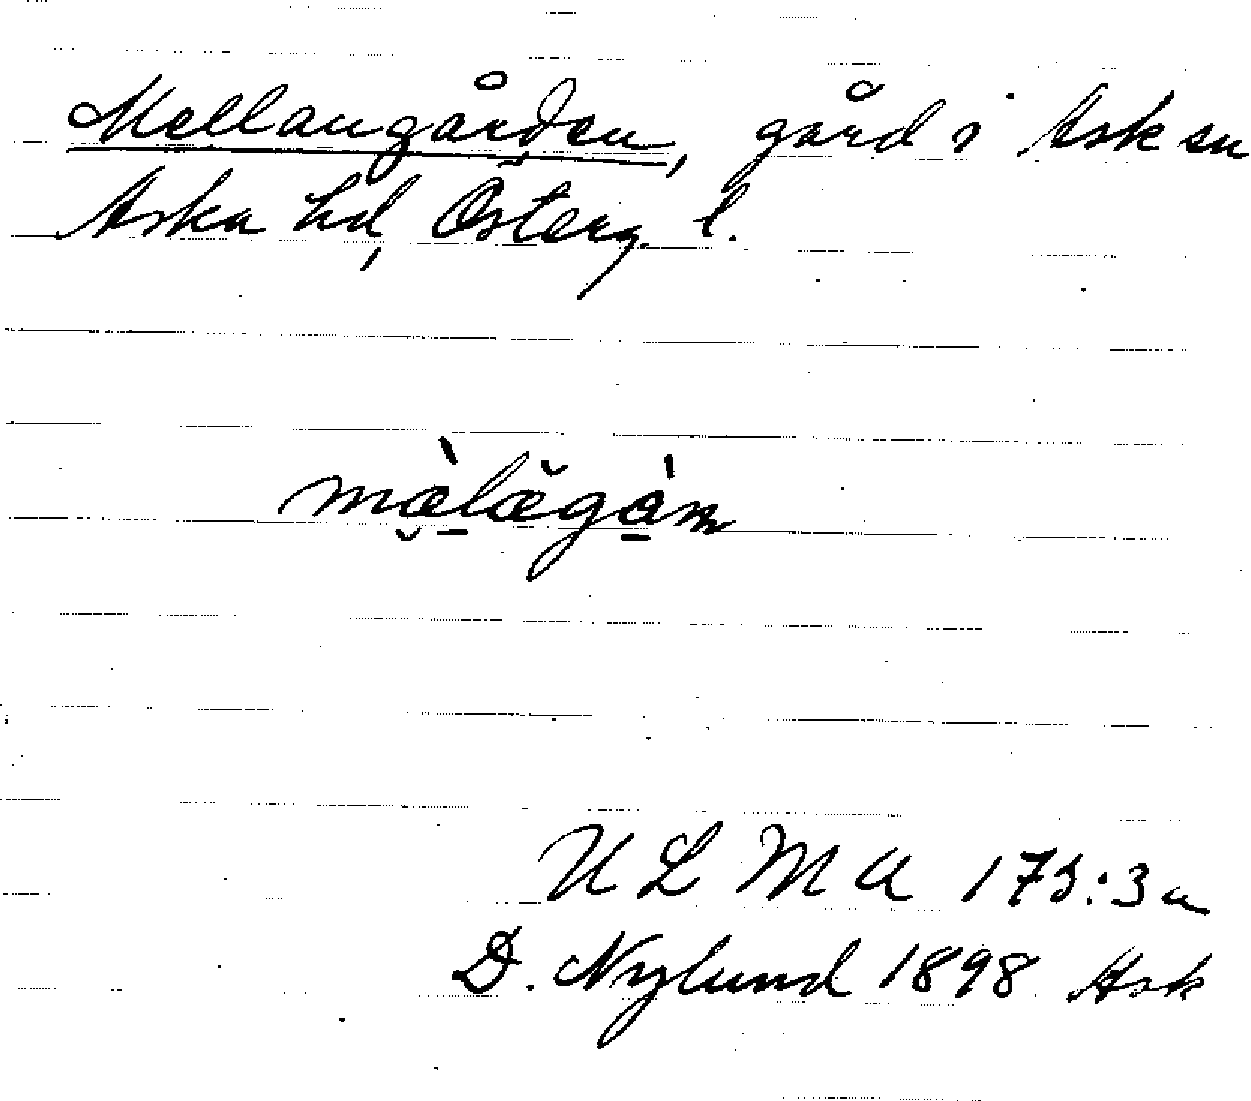 Mellangården, gård i Ask sn
Aska hd, Österg. l.
U L M A 173:3a
D. Nylund 1898 Ask